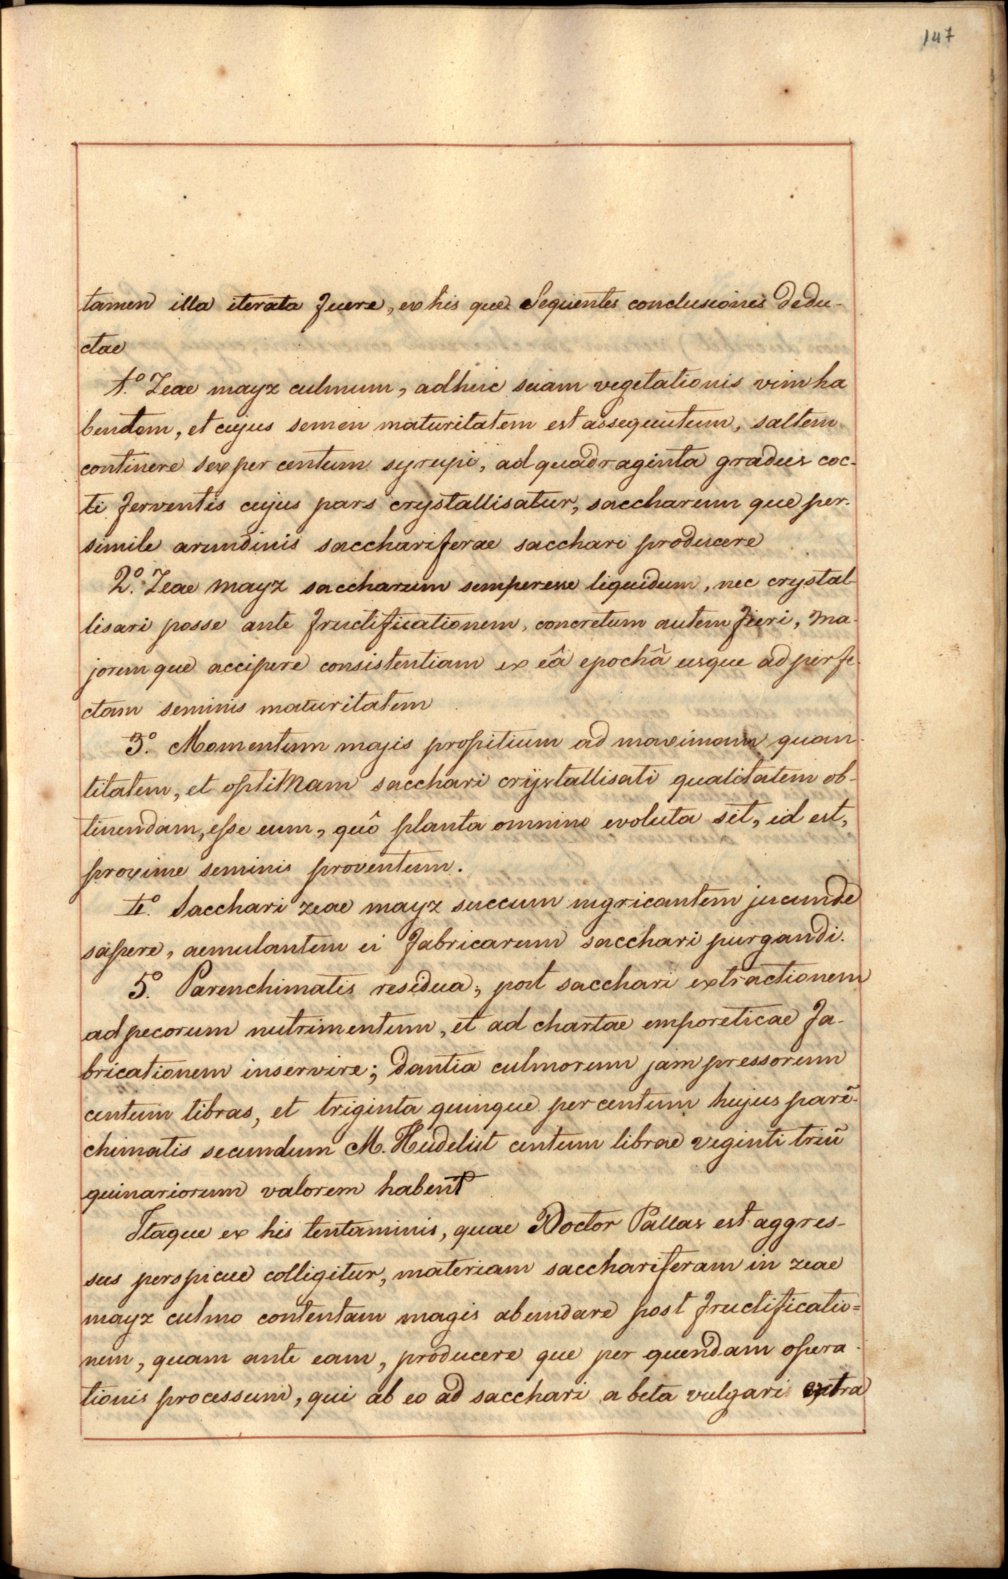 147
tamen illa iterata fuere, ex his que Sequentes conclusiones dedu-
ctae
1.º Zeae mayz culmum, adhuc suam vegetationis vim ha
bentem, et cujus semen maturitatem est assequutum, saltem
continere sex per centum syrupi, ad quadraginta gradus coc-
ti ferventis cujus pars crystallisatur, saccharum que per-
simile arundinis sacchariferae sacchari producere
2.º Zeae mayz saccharum semper esse liquidum, nec crystal-
lisari posse ante fructificationem, concretum autem fieri, ma-
jorem que accipere consistentiam ex eâ epochâ usque ad perfe-
ctam seminis maturitatem
3.º Momentum majis propitium ad maximam quan-
titatem, et optimam sacchari crystallisati qualitatem ob-
tinendam, esse eum, quô planta omnino evoluta sit, id est,
proxime seminis proventum.
4.º Sacchari zeae mayz succum nigricantem jucunde
sapere, aemulantem ei fabricarum sacchari purgandi.
5.º Parenchimatis residua, post sacchari extractionem
ad pecorum nutrimentum, et ad chartae emporeticae fa-
bricationem inservire; dantia culmorum jam pressorum
centum libras, et triginta quinque per centum hujus parē-
chimatis secundum M. Hudelist centum librae viginti triū
quinariorum valorem habent
Itaque ex his tentaminis, quae Doctor Pallas est aggres-
sus perspicue colligitur, materiam sacchariferam in zeae
mayz culmo contentam magis abundare post fructificatio=
nem, quam ante eam, producere que per quendam opera-
tionis processum, qui ab eo ad sacchari a beta vulgari extra